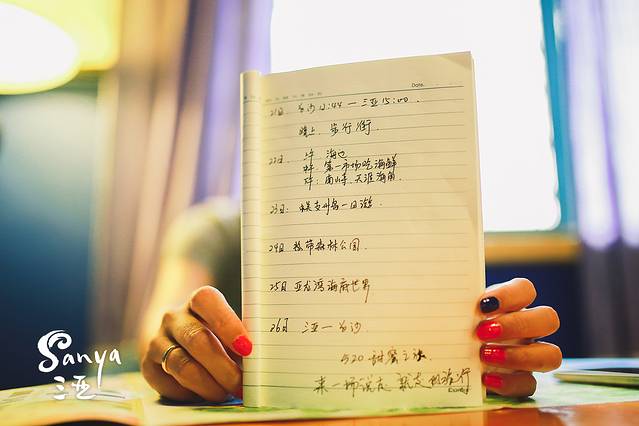 Date.
21日 长沙 12:44 — 三亚 15:00.
晚上. 步行街.
22日 上午 海边
中午 第一市场吃海鲜
下午: 南山寺. 天涯海角.
23日: 蜈支州岛一日游.
24日 热带森林公园.
25日 亚龙湾海底世界
26日 三亚 — 长沙.
520 甜蜜之旅.
来一场说走就走的旅行
Sanya
三亚